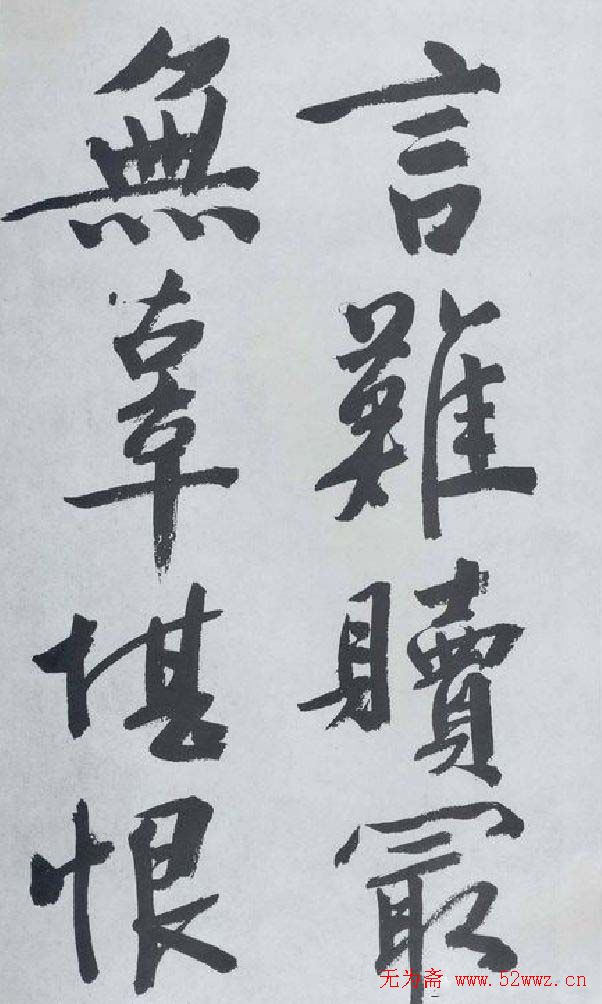 言難贖最
無辜堪恨
无为斋 www.52wwz.cn